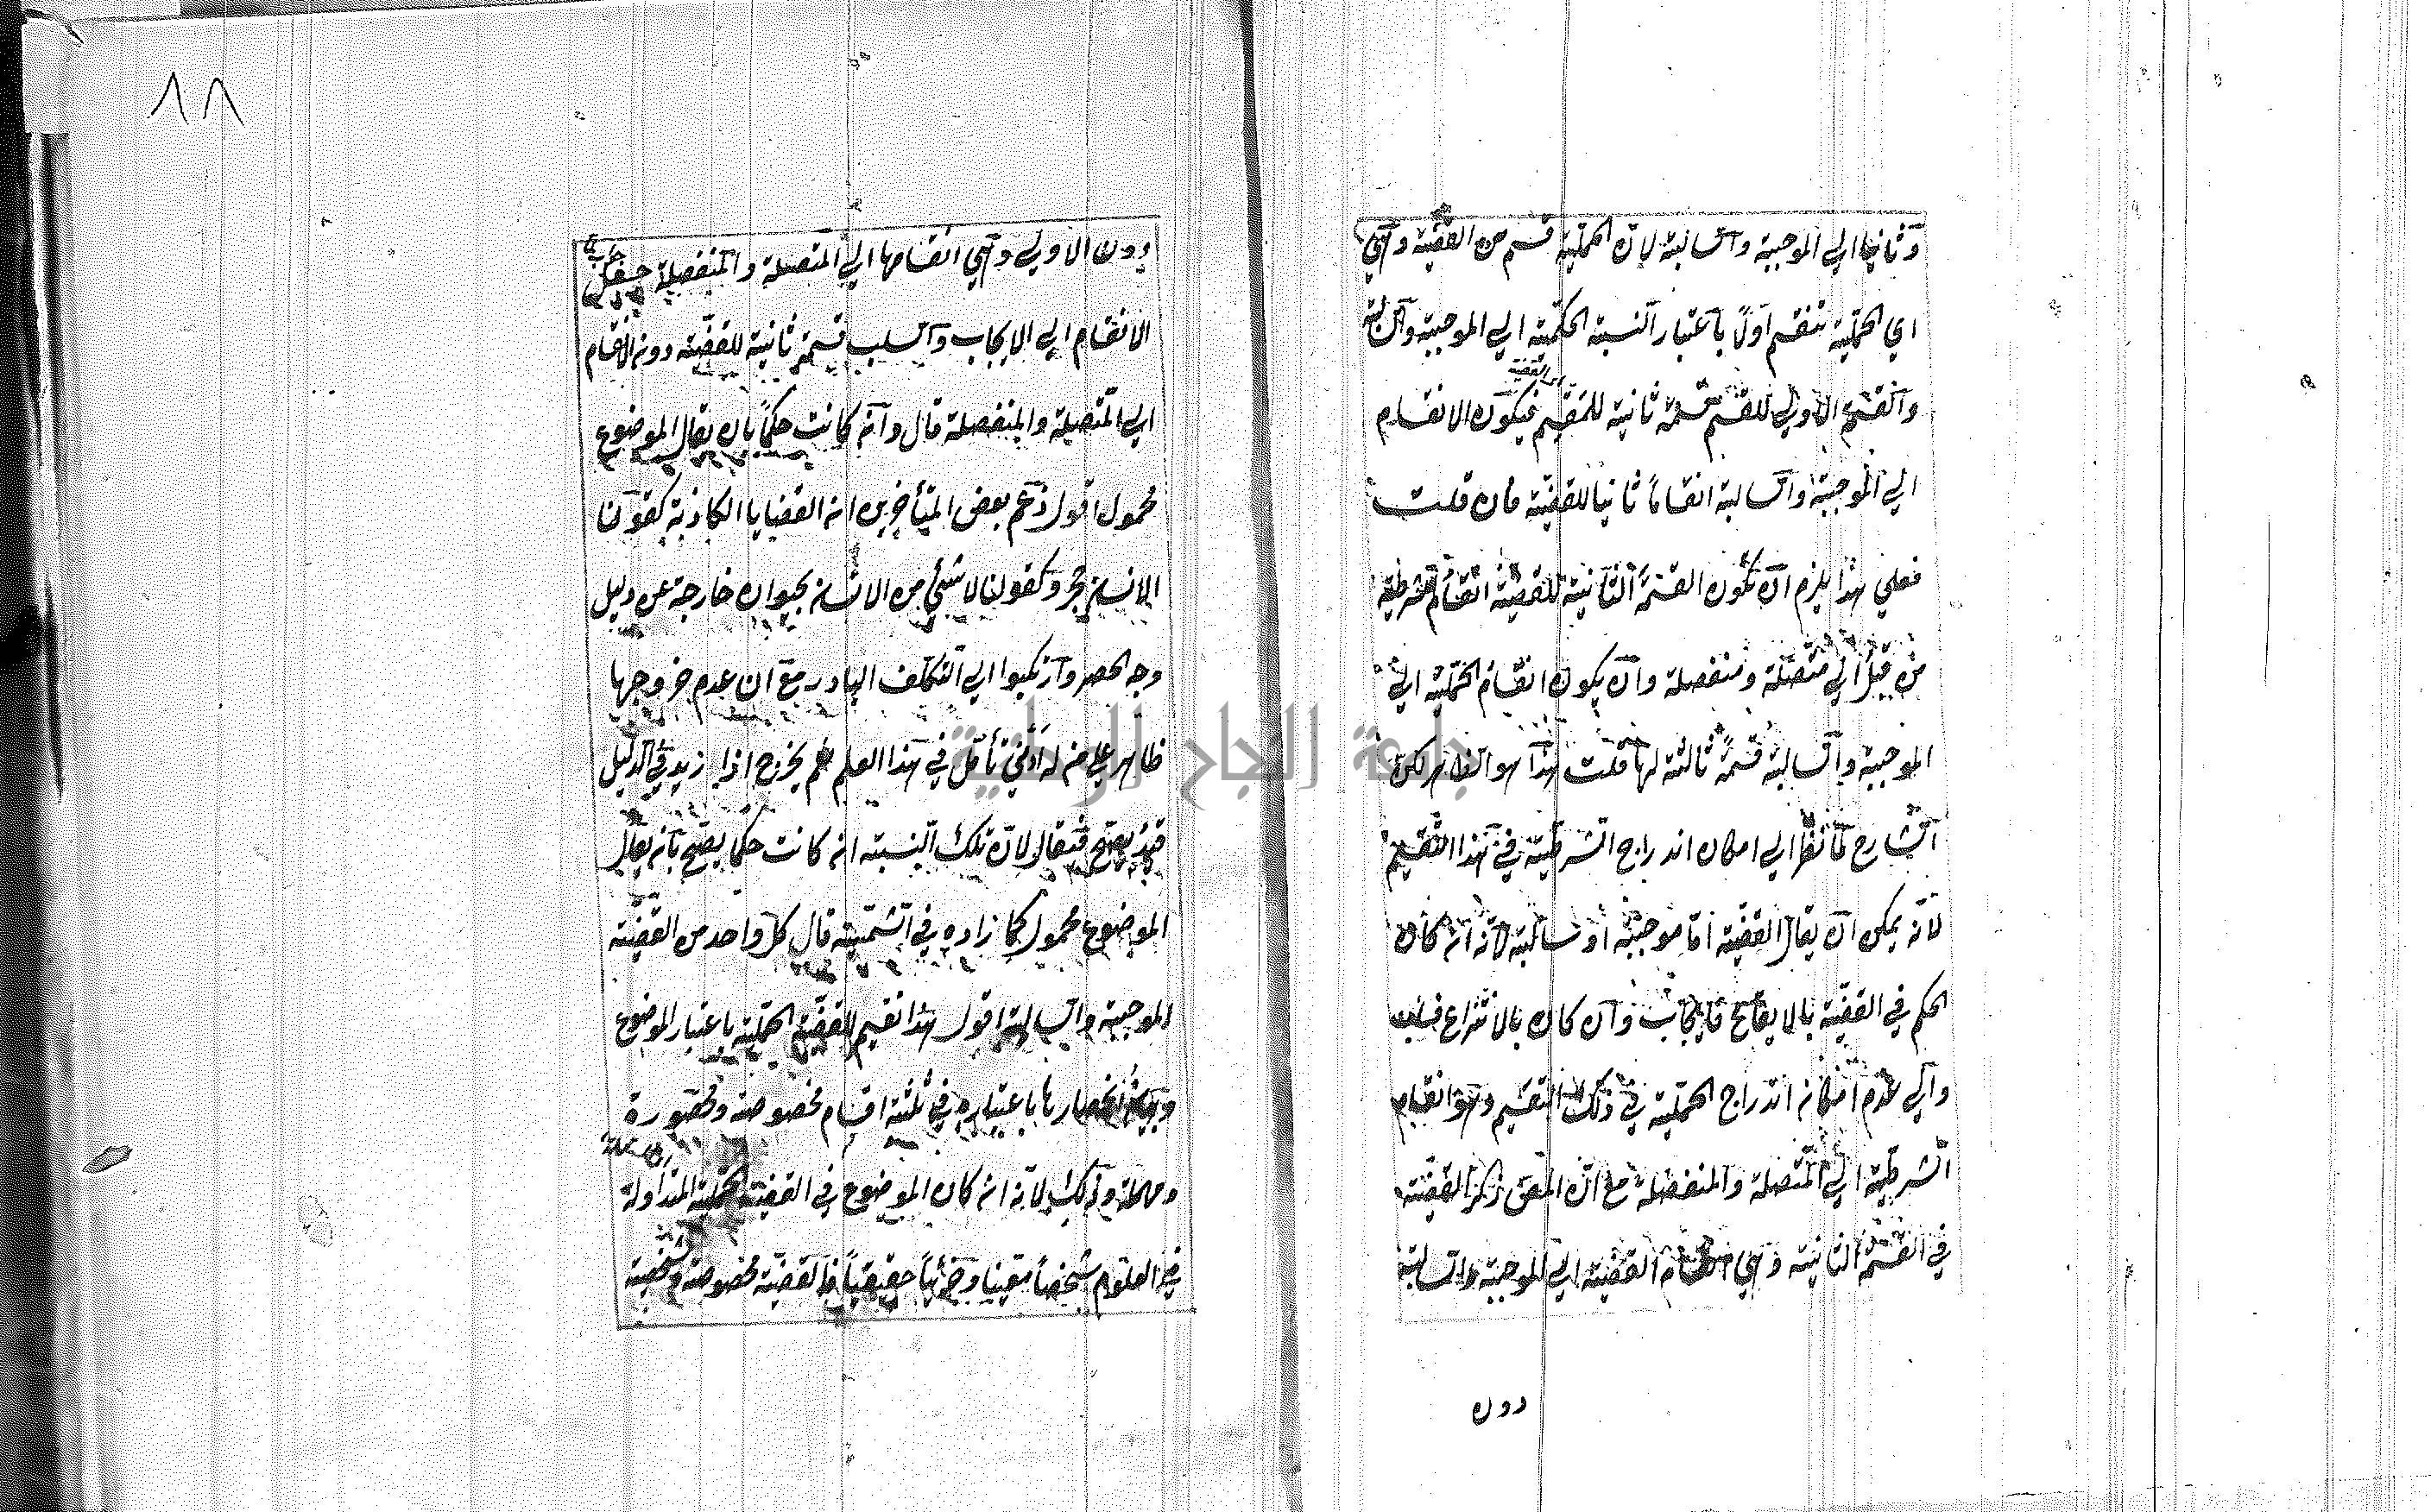 وثانيا الى الموجبة والسالبة لان الحملية قسم من القضية وهي
اي الحملية تنقسم اولا باعتبار النسبة الحكمية الى الموجبة والسالبة
والقسمة الاولى للقسم قسمة ثانية للمقسم فيكون الانقسام
الى الموجبة والسالبة انقساما ثانيا للقضية فان قلت
فعلى هذا يلزم ان تكون القسمة الثانية للقضية انقسام الشرطية
من قبل الى متصلة ومنفصلة وان يكون انقسام الحملية الى
الموجبة والسالبة قسمة ثالثة لها قلت هذا هو الظاهر لكن
الشارح لما نظر الى امكان اندراج الشرطية في هذا التقسيم
لانه يمكن ان يقال القضية اما موجبة او سالبة لانه ان كان
الحكم في القضية بالايقاع فايجاب وان كان بالانتزاع فسلب
والى عدم امكان اندراج الحملية في ذلك التقسيم وهو انقسام
الشرطية الى المتصلة والمنفصلة مع ان المص ذكر القضية
في القسمة الثانية وهي انقسام القضية الى الموجبة والسالبة
دون
١٨
دون الاولى وهي انقسامها الى المتصلة والمنفصلة جعل
الانقسام الى الايجاب والسلب قسمة ثانية للقضية دون الانقسام
الى المتصلة والمنفصلة قال وان كانت حكما بان يقال الموضوع
محمول اقول زعم بعض المتأخرين ان القضايا الكاذبة كقولنا
الانسان حجر وكقولنا لا شئ من الانسان بحيوان خارجة عن دليل
وجه الحصر وارتكبوا الى التكلف البارد مع ان عدم خروجها
ظاهر على من له ادنى تأمل في هذا العلم فلم يخرج اذا زيد في الدليل
قيد يصح فيقال لان تلك النسبة ان كانت حكما يصح بان يقال
الموضوع محمول كما زاده في الشمسية قال كل واحد من القضية
الموجبة والسالبة اقول هذا تقسيم للقضية الحملية باعتبار الموضوع
وبيان انحصارها باعتباره في ثلثة اقسام مخصوصة ومحصورة
ومهملة وذلك لانه ان كان الموضوع في القضية الحملية المتداولة
في العلوم شخصا معينا وجزئيا حقيقيا فالقضية مخصوصة وشخصية
جامعة النجاح الوطنية